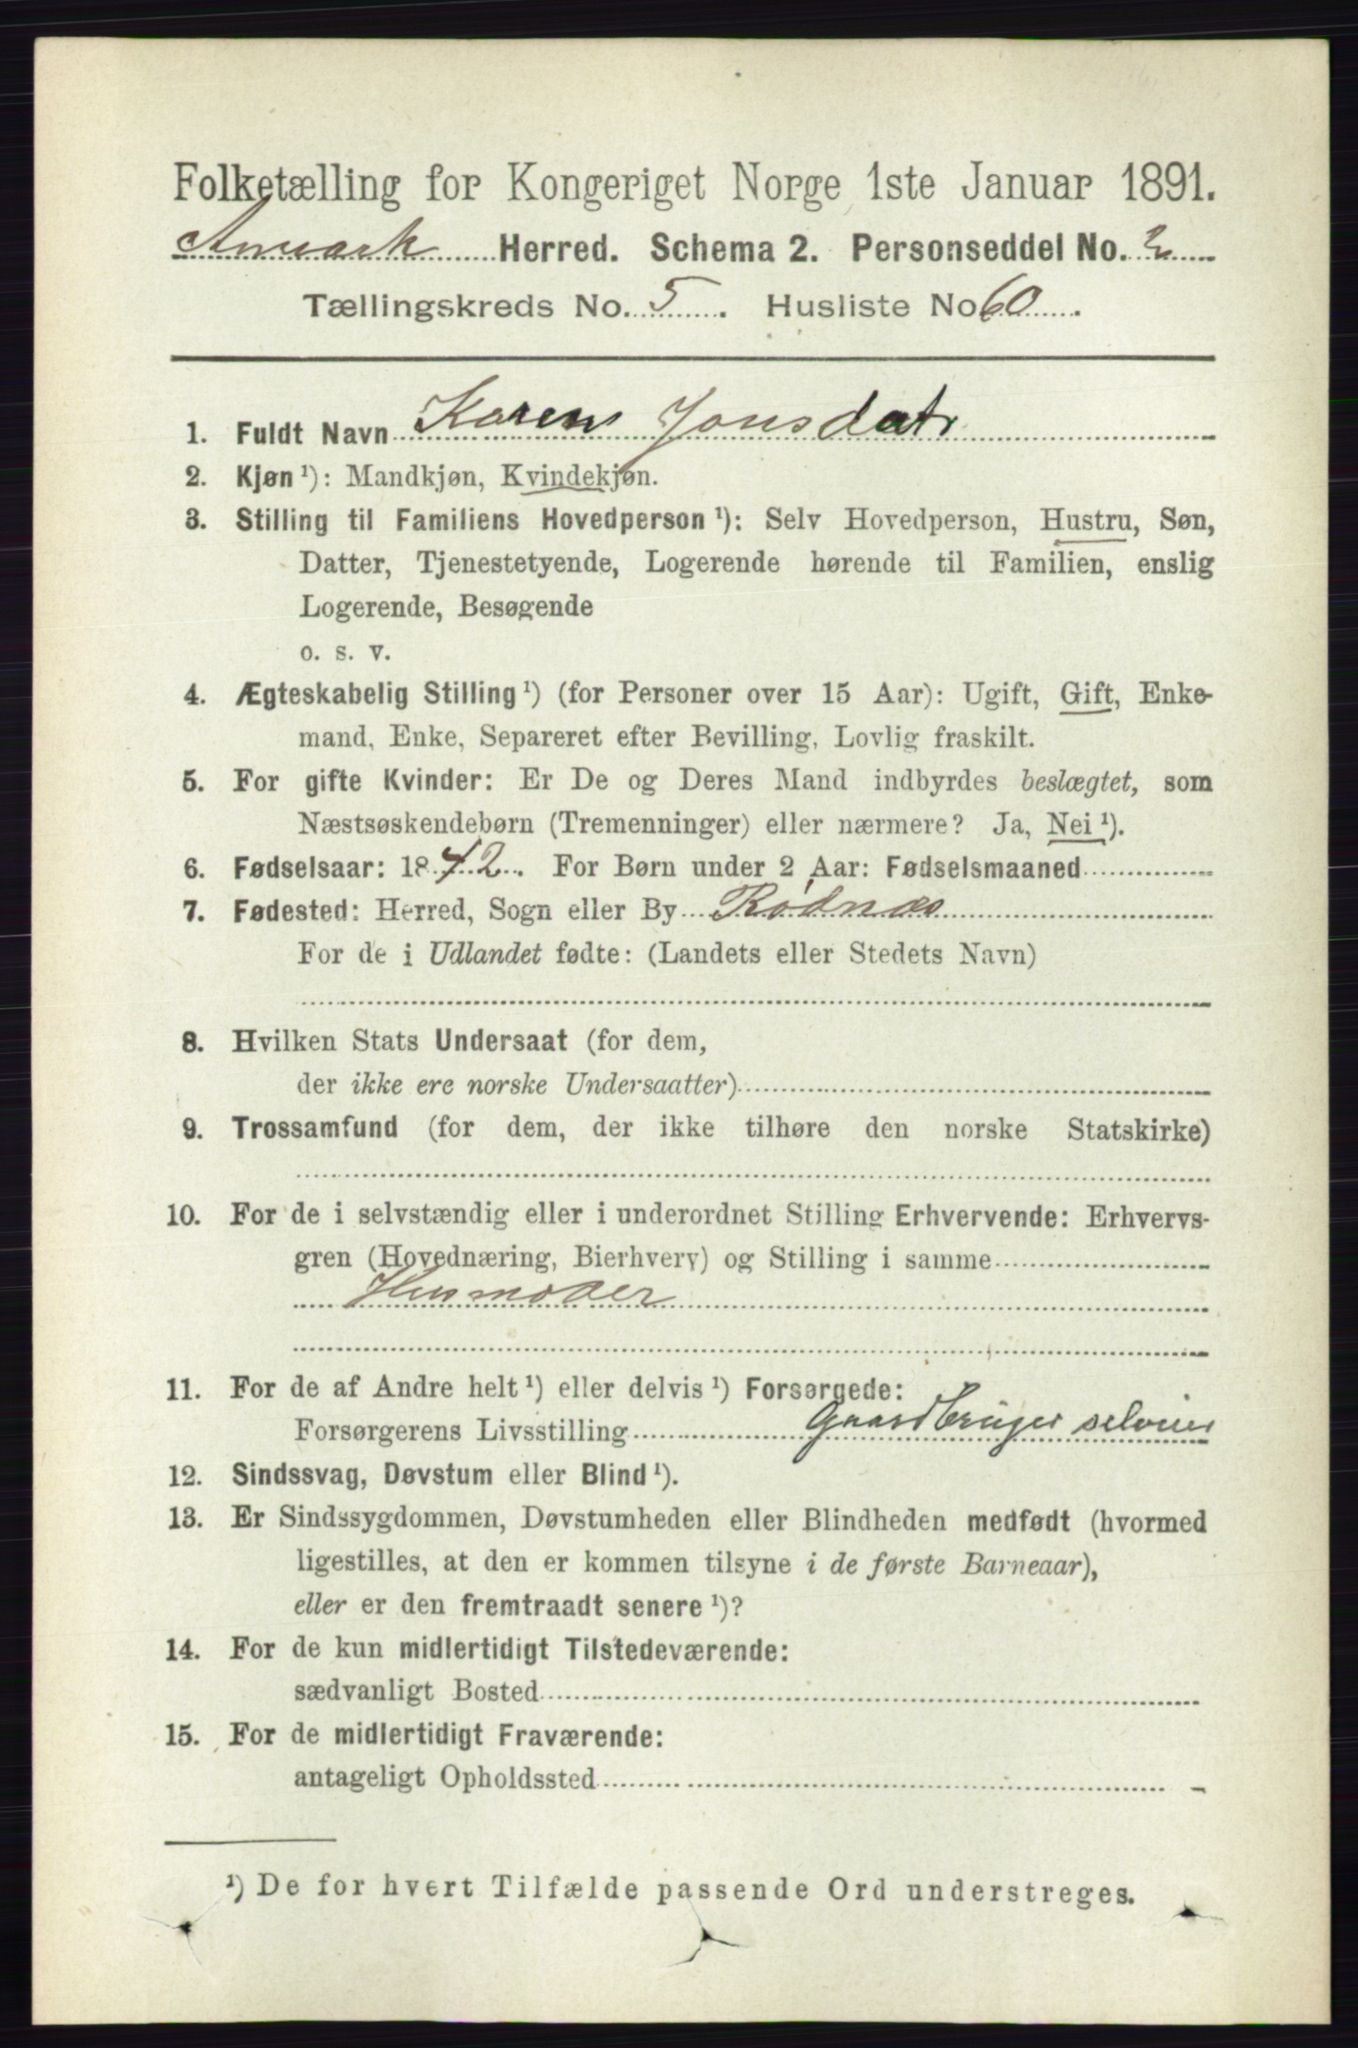 Folketælling for Kongeriget Norge 1ste Januar 1891.
Aremark Herred. Schema 2. Personseddel No. 2
Tællingskreds No. 5. Husliste No 60.
1. Fuldt Navn Karen Jonsdatr
2. Kjøn ¹): Mandkjøn, Kvindekjøn.
3. Stilling til Familiens Hovedperson ¹): Selv Hovedperson, Hustru, Søn,
Datter, Tjenestetyende, Logerende hørende til Familien, enslig
Logerende, Besøgende
o. s. v.
4. Ægteskabelig Stilling ¹) (for Personer over 15 Aar): Ugift, Gift, Enke-
mand, Enke, Separeret efter Bevilling, Lovlig fraskilt.
5. For gifte Kvinder: Er De og Deres Mand indbyrdes beslægtet, som
Næstsøskendebørn (Tremenninger) eller nærmere? Ja, Nei ¹).
6. Fødselsaar: 1842. For Børn under 2 Aar: Fødselsmaaned
7. Fødested: Herred, Sogn eller By Rødnæs
For de i Udlandet fødte: (Landets eller Stedets Navn)
8. Hvilken Stats Undersaat (for dem,
der ikke ere norske Undersaatter)
9. Trossamfund (for dem, der ikke tilhøre den norske Statskirke)
10. For de i selvstændig eller i underordnet Stilling Erhvervende: Erhvervs-
gren (Hovednæring, Bierhverv) og Stilling i samme
Husmoder
11. For de af Andre helt ¹) eller delvis ¹) Forsørgede:
Forsørgerens Livsstilling Gaardbruger selveier
12. Sindssvag, Døvstum eller Blind ¹).
13. Er Sindssygdommen, Døvstumheden eller Blindheden medfødt (hvormed
ligestilles, at den er kommen tilsyne i de første Barneaar),
eller er den fremtraadt senere ¹)?
14. For de kun midlertidigt Tilstedeværende:
sædvanligt Bosted
15. For de midlertidigt Fraværende:
antageligt Opholdssted
¹) De for hvert Tilfælde passende Ord understreges.